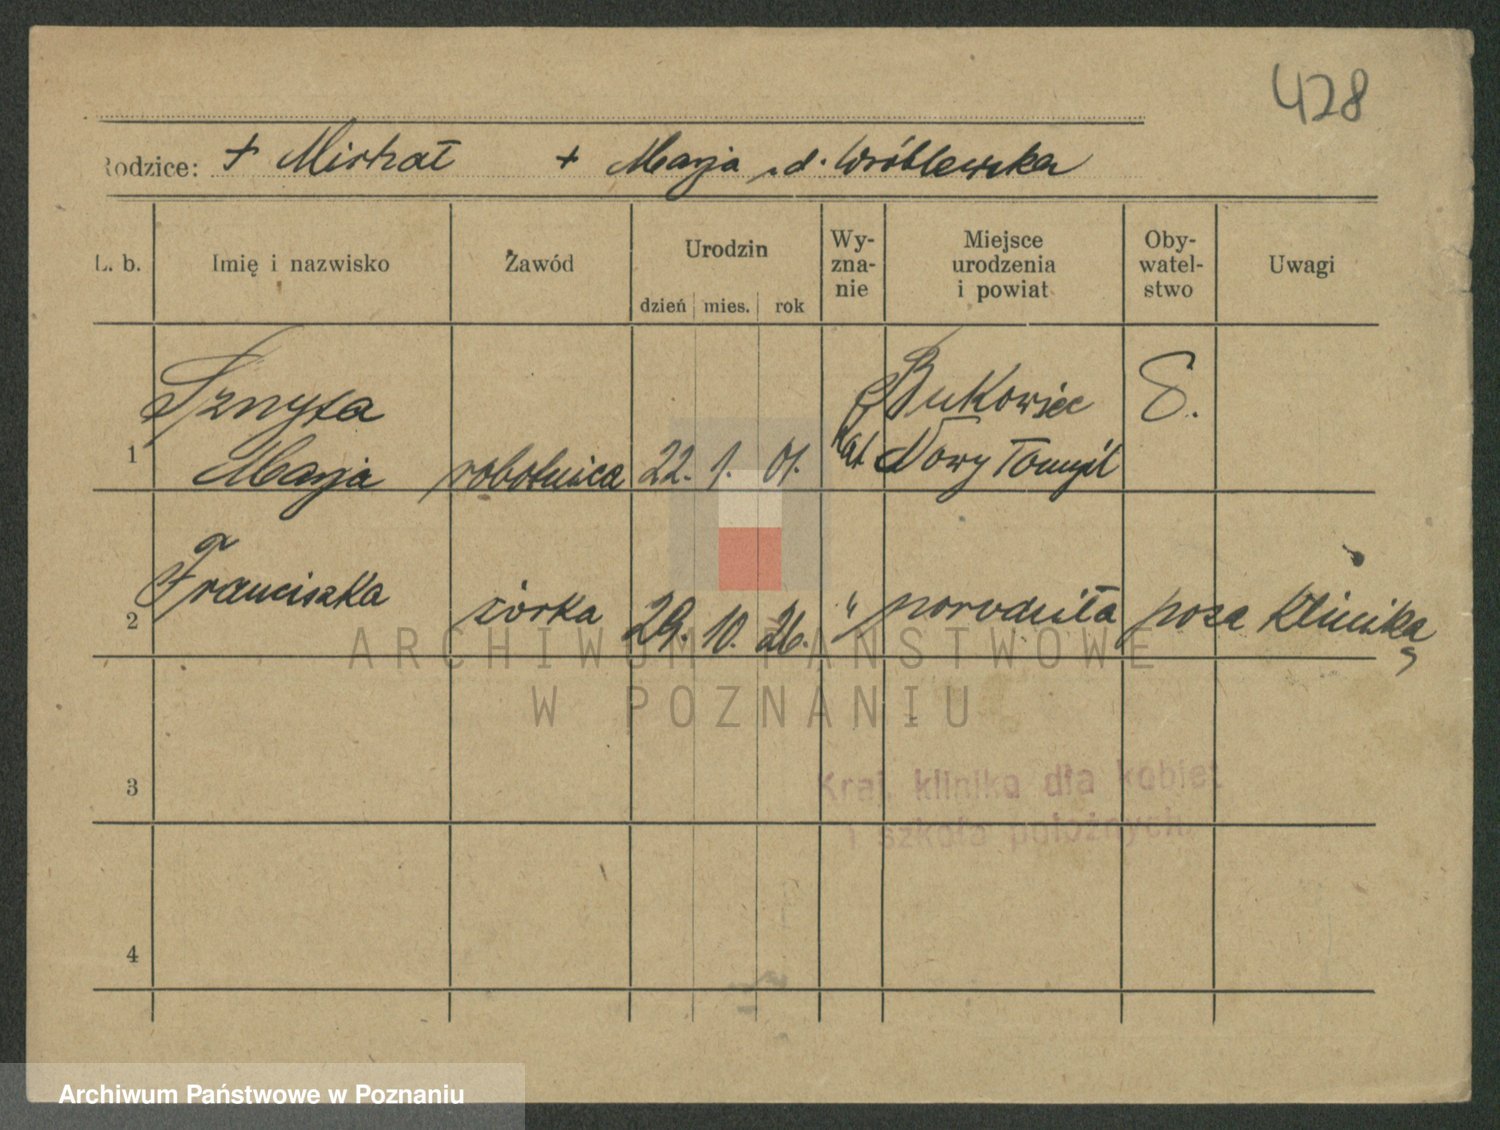 428
Rodzice: + Michał + Marja z d. Wróblewska
L. b. Imię i nazwisko Zawód Urodzin dzień mies. rok Wy-zna-nie Miejsce urodzenia i powiat Oby-watel-stwo Uwagi
Sznyza Bukowiec
1 Marja robotnica 22. 1. 01. kat Nowy Tomyśl
2 Franciszka córka 29. 10. 26. " porodziła poza kliniką
ARCHIWUM PAŃSTWOWE
W POZNANIU
3
Kraj. klinika dla kobiet
i szkoła położnych.
4
Archiwum Państwowe w Poznaniu